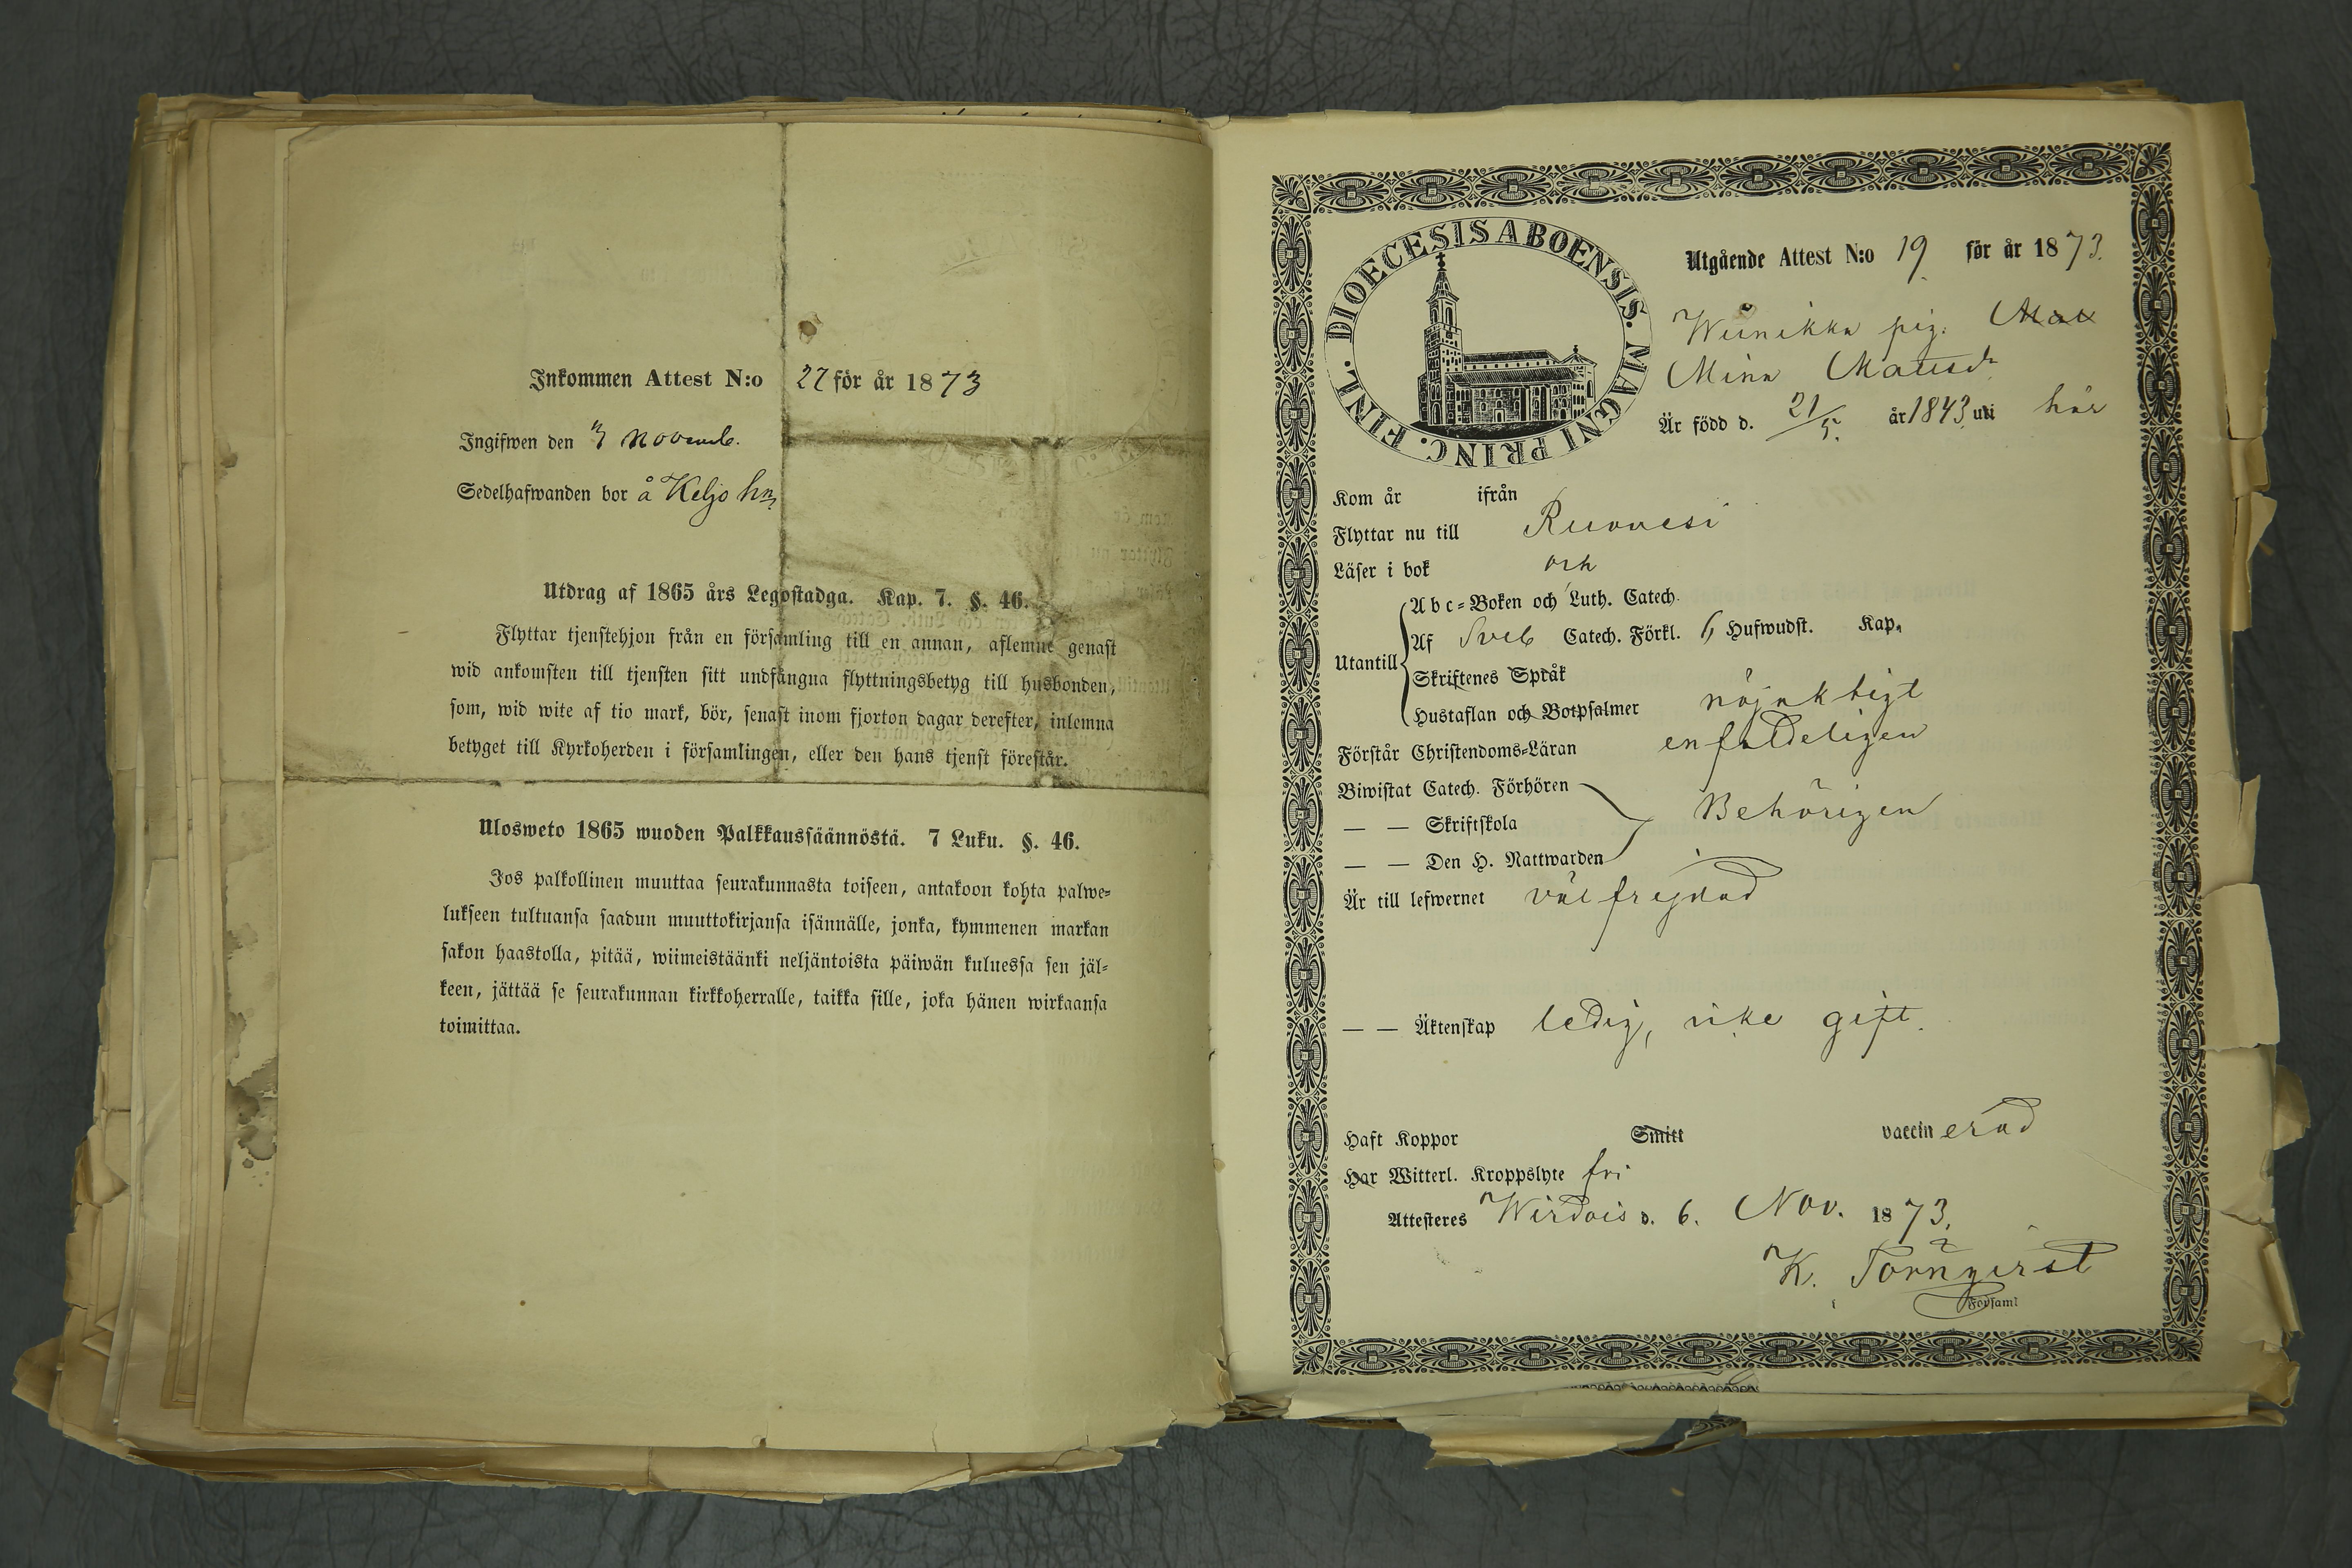 Inkommen Attest N:o 27 för år 1873
Ingifwen den Novemb.
Sedelhafwanden bor å Keljo hn
Utdrag af 1865 års Legostadga. Kap. 7. §. 46.
Flyttar tjenstehjon från en församling till en annan, aflemne genast
wid ankomsten till tjensten sitt undfångna flyttningsbetyg till husbonden,
som, wid wite af tio mark, bör, senast inom fjorton dagar derefter, inlemna
betyget till Kyrkoherden i församlingen, eller den hans tjenst förestår.
Ulosweto 1865 wuoden Palkkaussäännöstä. 7 Luku. §. 46.
Jos palkollinen muuttaa seurakunnasta toiseen, antakoon kohta palwe-
lukseen tultuansa saadun muuttokirjansa isännälle, jonka, kymmenen markan
sakon haastolla, pitää, wiimeistäänki neljäntoista päiwän kuluessa sen jäl-
keen, jättää se seurakunnan kirkkoherralle, taikka sille, joka hänen wirkaansa
toimittaa.
DIOECESIS ABOENSIS. MAGNI PRINC. FINL.
Utgående Attest N:o 19 för år 1873.
pig.
Mina Matsd
Är född d. 21/5. år 1843 uti här
Kom år ifrån
Flyttar nu till Ruovesi
Läser i bok och
Abc-Boken och Luth. Catech.
Utantill Af Sveb Catech. Förkl. 6 Hufwudst. Kap.
Skriftenes Språk
Hustaflan och Botpsalmer nöjaktigt
Förstår Christendoms-Läran enfaldeligen
Biwistat Catech. Förhören
— — Skriftskola Behörigen
— — Den H. Nattwarden
Är till lefwernet väl frejdad
— — Äktenskap ledig, icke gift.
Haft Koppor Smitt vaccinerad
Har Witterl. Kroppslyte fri
Attesteres Wirdois d. 6. Nov. 1873.
K. Törnqvist
Församl